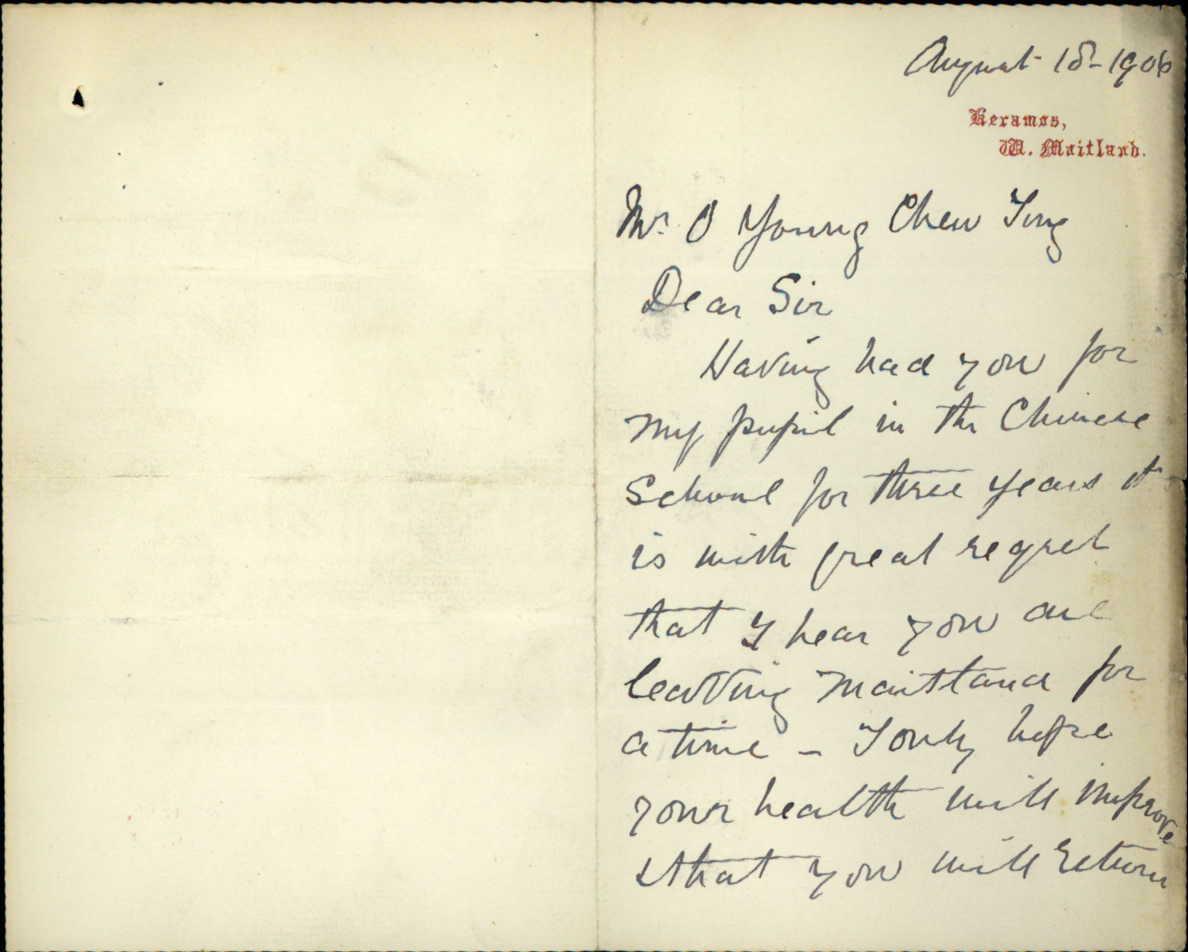 August 18 - 1906
Keramos,
W. Maitland.
Mr. O Young Chew Ting
Dear Sir
Having had you for
my pupil in the Chinese
School for three years it
is with great regret
that I hear you are
leaving Maitland for
a time - I only hope
your health will improve
& that you will return